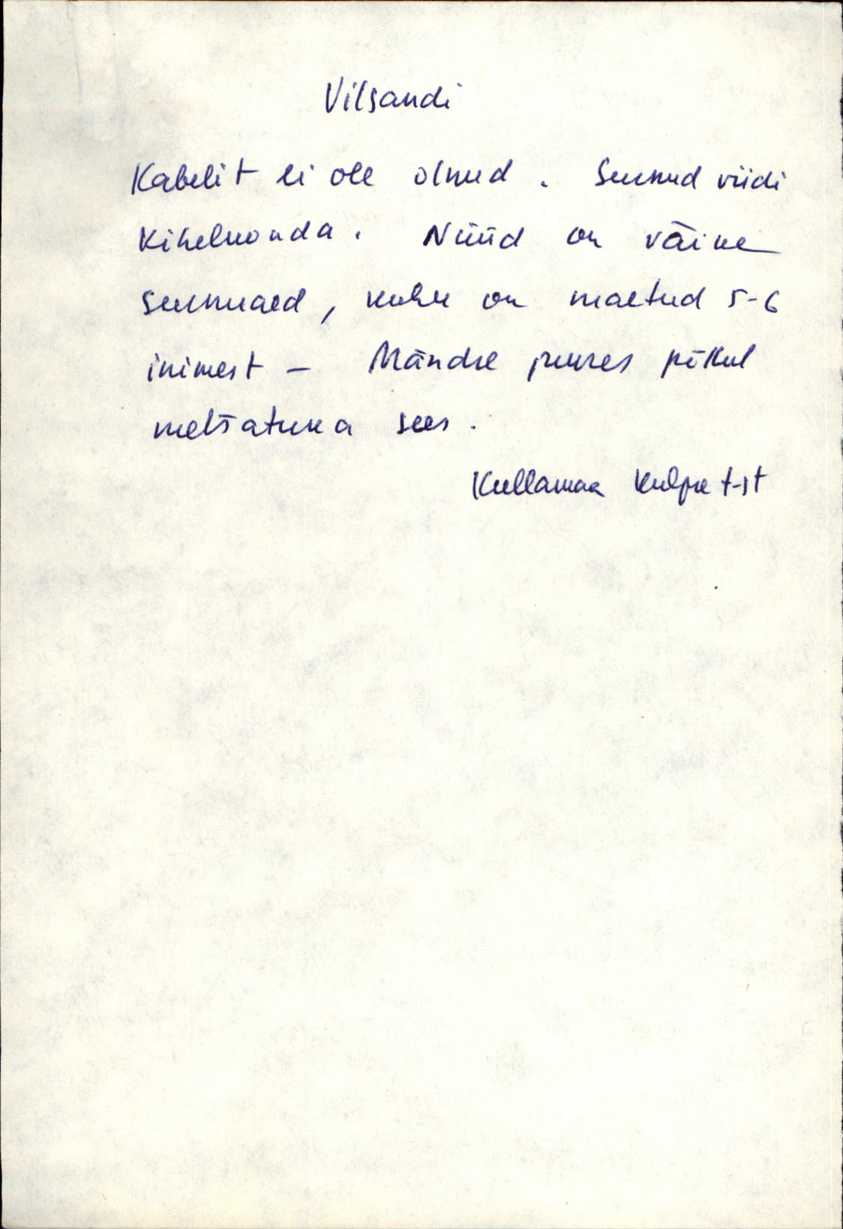 Vilsandi
Kabelit ei ole olnud. Surnud viidi
Kihelkonda. Nüüd on väike
surnuaed, kuhu on maetud 5-6
inimest – Mändse juures põllul
metsatuka sees.
Kullamaa